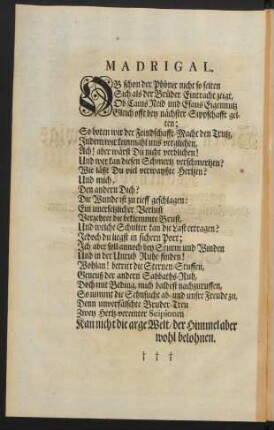 MADRIGAL.
OB schon der Phönix nicht so selten
Sich als der Brüder Eintracht zeigt,
Ob Cains Neid und Esaus Eigennutz
Gleich offt bey nächster Sippschafft gel-
ten;
So boten wir der Feindschaffts-Macht den Trutz,
Indem wir uns verglichen,
Ach! aber wärst Du nicht verblichen!
Und wer kan diesen Schmertz verschmertzen?
Wie läßt Du viel verwayßte Hertzen?
Und mich,
Den andern Dich?
Die Wunde ist zu tieff geschlagen:
Ein unersetzlicher Verlust
Verzehret die beklemmte Brust,
Und welche Schulter kan die Last ertragen?
Jedoch du liegst in sichern Port;
Ich aber soll annoch bey Sturm und Winden
Und in der Unruh Ruhe finden!
Wohlan! betritt die Sternen-Stuffen,
Geneuß der andern Sabbaths-Ruh,
Doch mit Beding, mich baldest nachzuruffen,
So nimmt die Sehnsucht ab und unsre Freude zu,
Denn unverfälschte Bruder-Treu
Zwey Hertz-vereinter Scipionen
Kan nicht die arge Welt/ der Himmel aber
wohl belohnen.
† † †